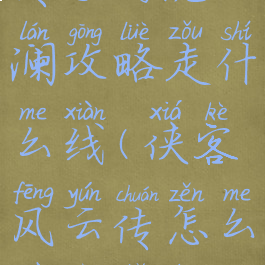 lán gōng lüè zǒu shí
澜攻略走什
me xiàn xiá kè
么线(侠客
fēng yún chuán zěn me
风云传怎么